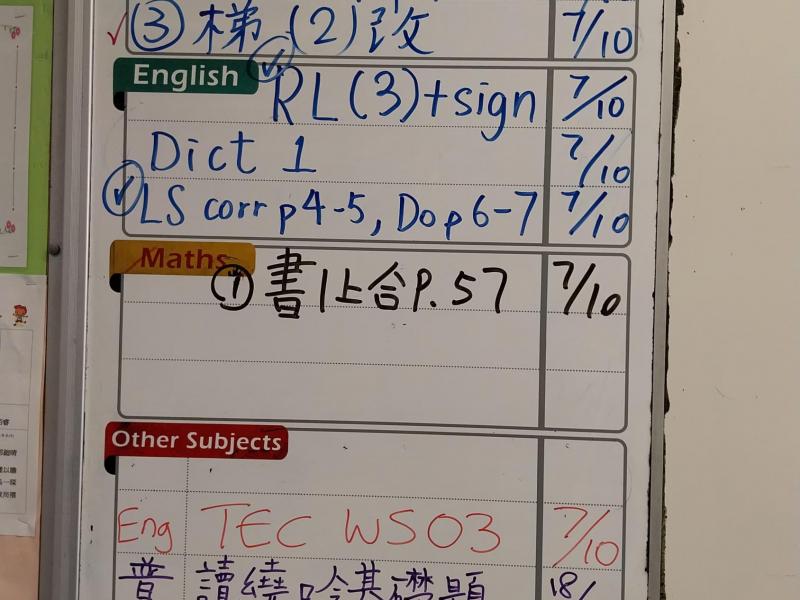 ③ 梯 (2) 改 7/10
English
RL(3)+sign 7/10
Dict 1 7/10
LS corr p4-5, Do p6-7 7/10
Maths
① 書1上合P.57 7/10
Other Subjects
Eng TEC WS03 7/10
普 讀繞 礎題 18/